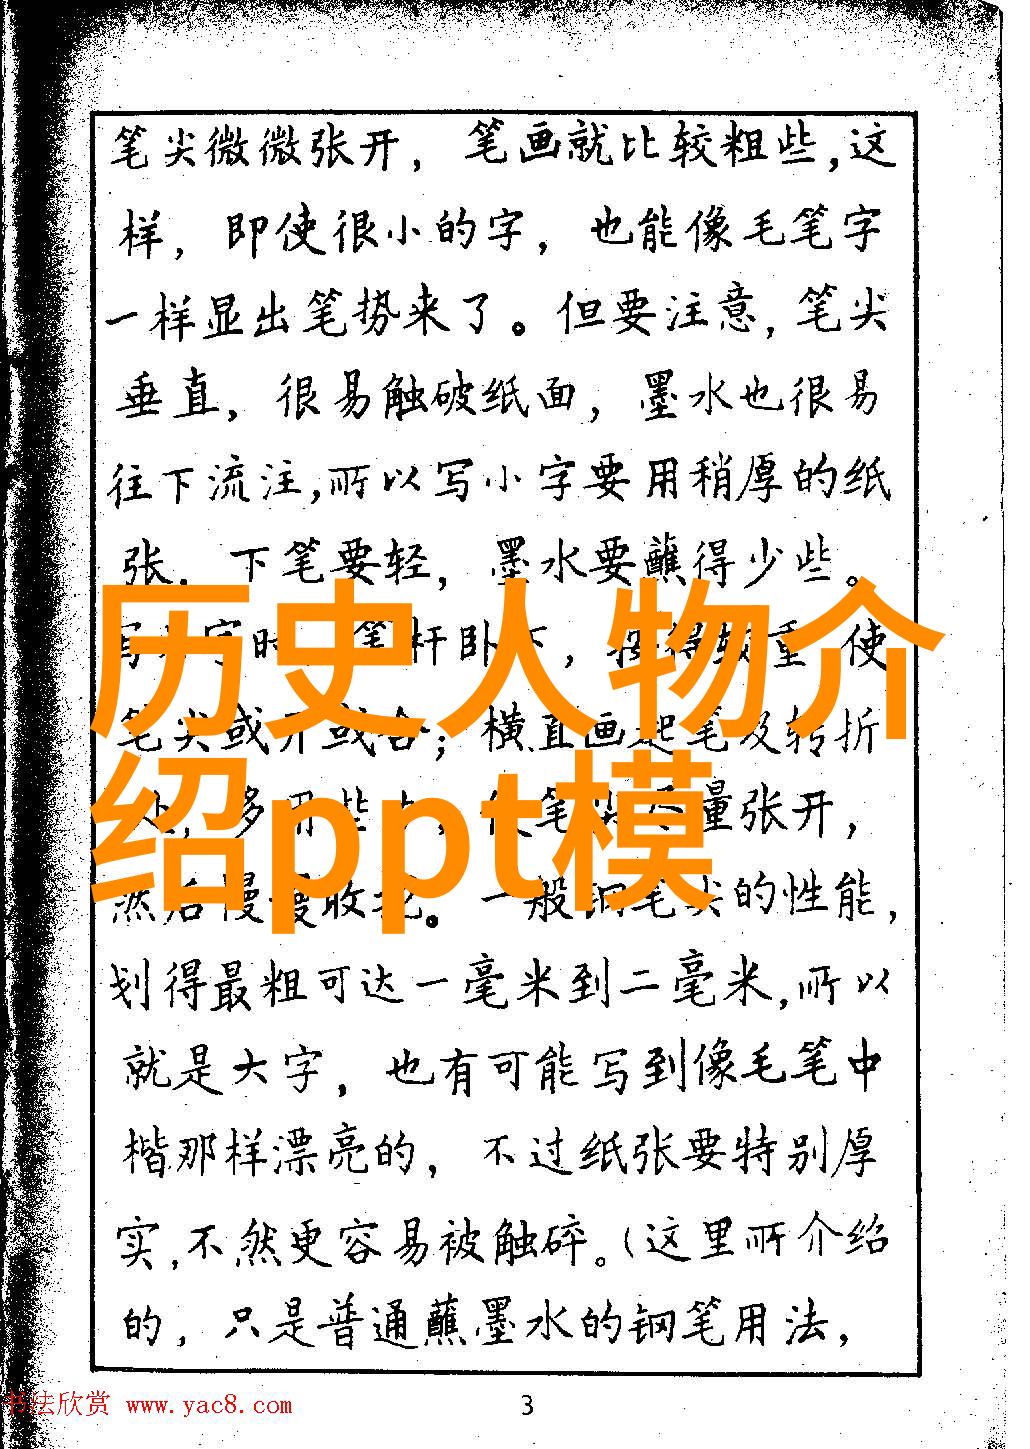 笔尖微微张开，笔画就比较粗些，这
样，即使很小的字，也能像毛笔字
一样显出笔势来了。但要注意，笔尖
垂直，很易触破纸面，墨水也很易
往下流注，所以写小字要用稍厚的纸
张．下笔要轻，墨水要蘸得少些。
字时笔杆卧下，得较重使
笔尖或开或合；横直画起笔及转折
处，多用些力，使笔尖尽量张开，
然后慢慢收拢。一般钢笔尖的性能，
划得最粗可达一毫米到二毫米，所以
就是大字，也有可能写到像毛笔中
楷那样漂亮的，不过纸张要特别厚
实，不然更容易被触碎。（这里所介绍
的，只是普通蘸墨水的钢笔用法，
历史人物介
绍ppt模
书法欣赏 www.yac8.com
3